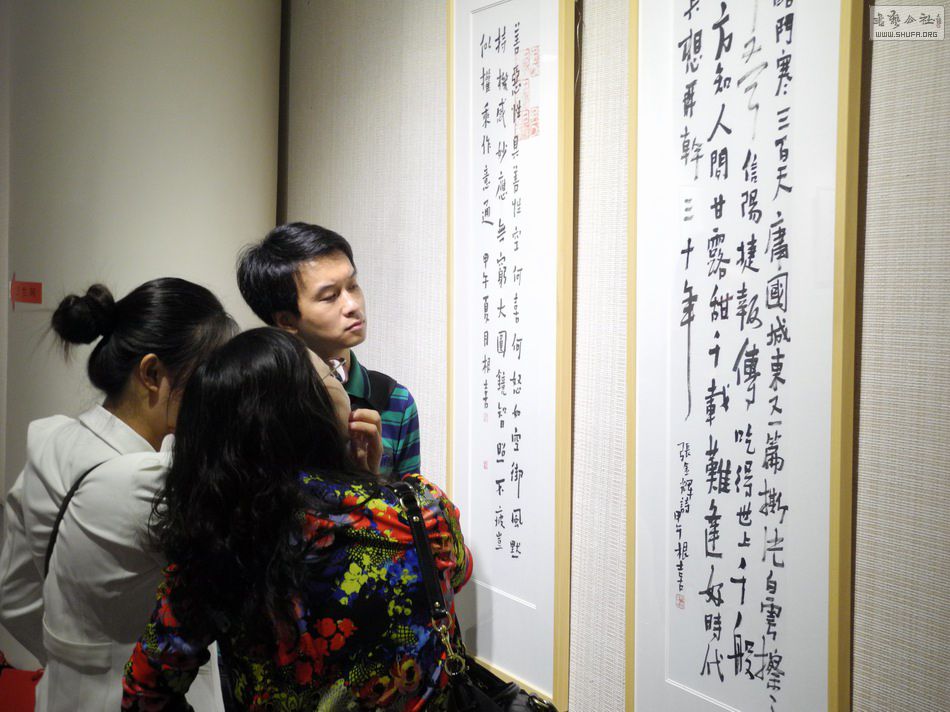 書藝公社
WWW.SHUFA.ORG
門寒三百天 廣國城東又一篇 撕片白雲擦
信陽捷報傳 吃得世上千般
方知人間甘露甜 千載難逢好時代
想再幹三十年
張金輝詩 甲午根喜
善惡性具善性空何喜何怒如空御風默
持機感妙應無窮大圓鏡智照不疲豈
似摧乘作意通 甲午夏月根喜